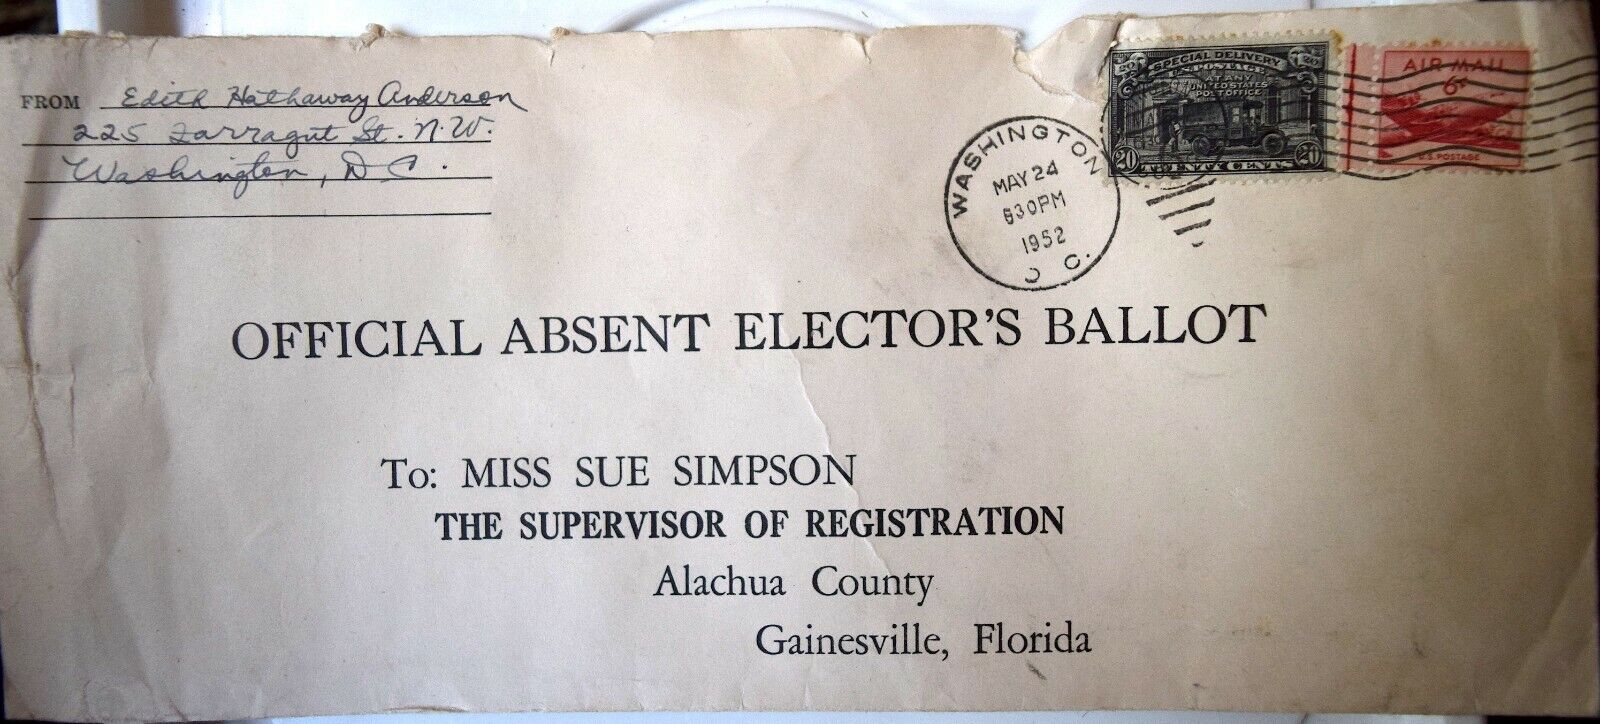 FROM Edith Hathaway Anderson
225 Farragut St. N.W.
Washington, D C.
SPECIAL DELIVERY
U.S. POSTAGE
AT ANY
UNITED STATES
POST OFFICE
20 TWENTY CENTS 20
AIR MAIL
6¢
U.S. POSTAGE
WASHINGTON
MAY 24
630PM
1952
D C.
OFFICIAL ABSENT ELECTOR'S BALLOT
To: MISS SUE SIMPSON
THE SUPERVISOR OF REGISTRATION
Alachua County
Gainesville, Florida